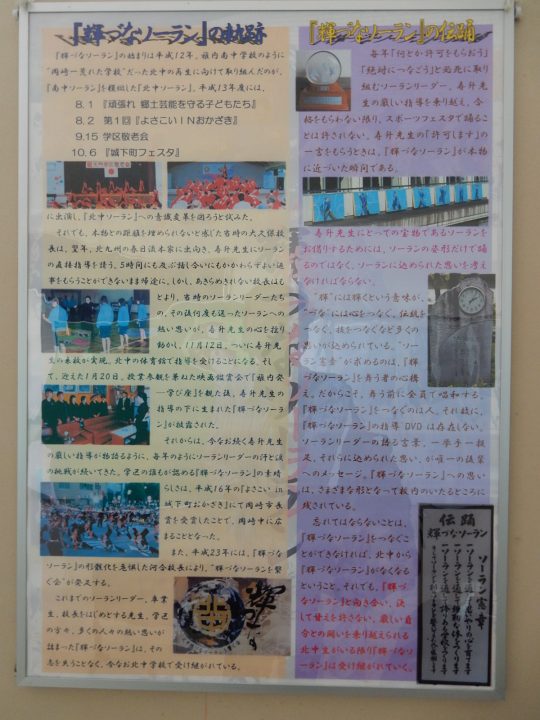 『輝づなソーラン』の軌跡
『輝づなソーラン』の始まりは平成12年。稚内南中学校のように
"岡崎一荒れた学校"だった北中の再生に向けて取り組んだのが、
『南中ソーラン』を模倣した『北中ソーラン』。平成13年度には、
8.1 『頑張れ 郷土芸能を守る子どもたち』
8.2 第1回『よさこいINおかざき』
9.15 学区敬老会
10.6 『城下町フェスタ』
に出演し、『北中ソーラン』への意識変革を図ろうと試みた。
それでも、本物との距離を埋められないと感じた当時の大久保校
長は、翌年、北九州の春日流本家に出向き、寿升先生にソーラン
の直接指導を請う。5時間にも及ぶ話し合いにもかかわらずよい返
事をもらうことができないまま帰途に。しかし、あきらめきれない校長はも
とより、当時のソーランリーダーたち
の、その後何度も送ったソーランへの
熱い思いが、寿升先生の心を揺り
動かし、11月12日、ついに寿升先
生の来校が実現。北中の体育館で指導を受けることになる。そし
て、迎えた1月20日。授業参観を兼ねた映画鑑賞会で『稚内発
・学び座』を観た後、寿升先生
の指導の下に生まれた『輝づなソーラ
ン』が披露された。
それからは、今なお続く寿升先生
の厳しい指導が物語るように、毎年のようにソーランリーダーの汗と涙
の挑戦が続いてきた。学区の誰もが認める『輝づなソーラン』の素晴
らしさは、平成16年の『よさこい in
城下町おかざき』にて岡崎市長
賞を受賞したことで、岡崎中に広
まることとなった。
また、平成23年には、『輝づなソ
ーラン』の形骸化を危惧した河合教長により、"輝づなソーランを繋
ぐ会"が発足する。
これまでのソーランリーダー、卒業
生、校長をはじめとする先生、学区
の方々、多くの人々の熱い思いが
詰まった『輝づなソーラン』は、その
志を失うことなく、今なお北中学校で受け継がれている。
『輝づなソーラン』の伝踊
毎年「何とか許可をもらおう」
「絶対につなごう」と必死に取り
組むソーランリーダー。寿升先
生の厳しい指導を乗り越え、合
格をもらわない限り、スポーツフェスタで踊るこ
とは許されない。寿升先生の「許可します」の
一言をもらうときは、『輝づなソーラン』が本物
に近づいた瞬間である。
寿升先生にとっての宝物であるソーランを
お借りするためには、ソーランの姿形だけで踊
るのではなく、ソーランに込められた思いを考え
なければならない。
"輝"には輝くという意味が、
"づな"には心をつなぐ、伝統を
つなぐ、技をつなぐなど多くの
思いが込められている。"ソー
ラン憲章"が求めるのは、『輝
づなソーラン』を舞う者の心構
え。だからこそ、舞う前に全員で唱和する。
『輝づなソーラン』をつなぐのは人。それ故に、
『輝づなソーラン』の指導DVDは存在しない。
ソーランリーダーの語る言葉、一挙手一投
足、それらに込められた思い、が唯一の後輩
へのメッセージ。『輝づなソーラン』への思い
は、さまざまな形となって校内のいたるところに
残されている。
忘れてはならないことは、
『輝づなソーラン』をつなぐこ
とができなければ、北中から
『輝づなソーラン』がなくなる
ということ。それでも、『輝づ
なソーラン』と向き合い、決
して甘えを許さない、厳しい自
分との闘いを乗り越えられる
北中生がいる限り『輝づなソ
ーラン』は受け継がれていく。
伝踊
輝づなソーラン
ソーラン憲章